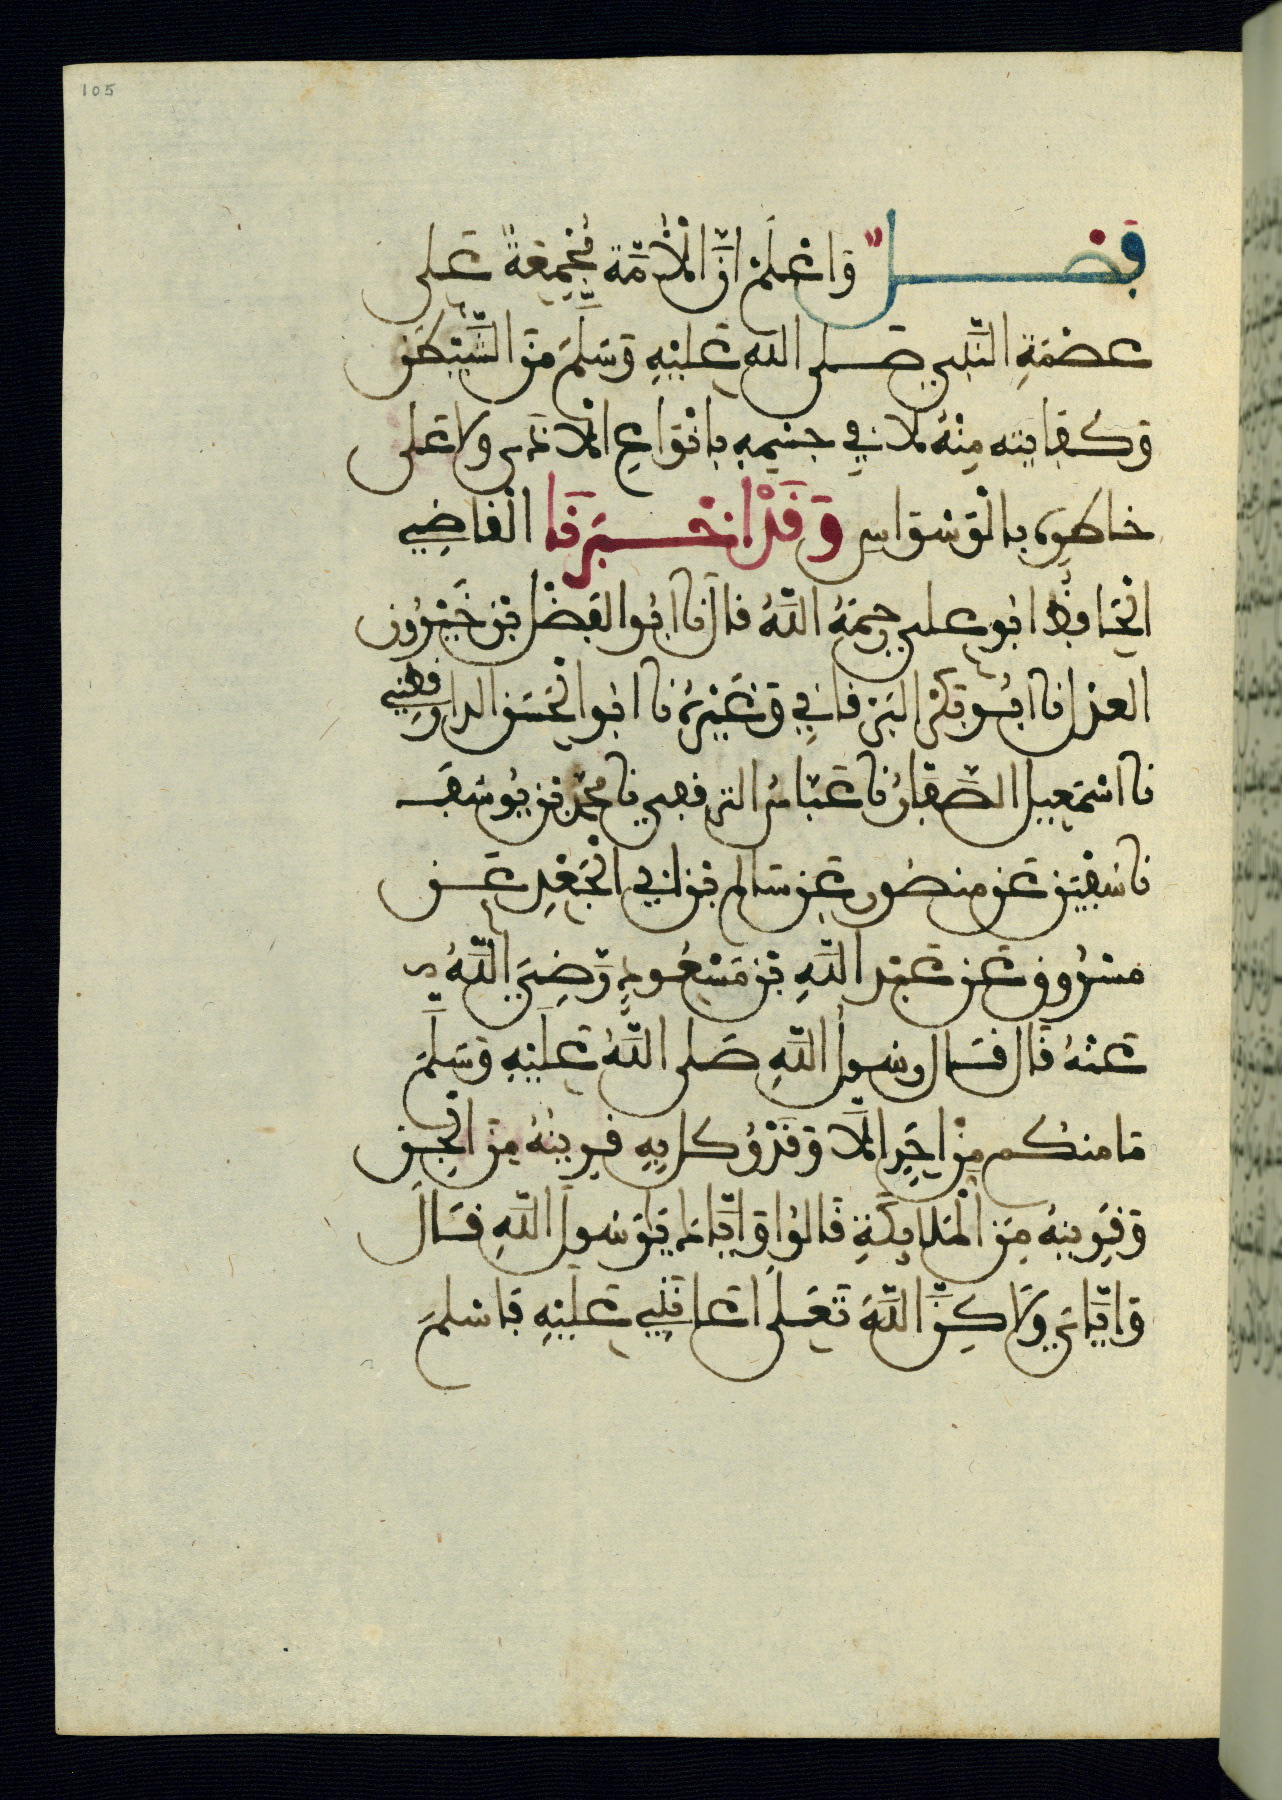 105
فصل وَاعْلَمْ انَّ الْأُمَّةَ مُجْمِعَةٌ عَلى
عصْمَةِ النَّبِي صَلى الله عَلَيْهِ وَسَلَّمَ مِنَ الشَّيْطَن
وَكفايته مِنْهُ لا فِي جِسْمِهِ بانْوَاعِ الْأذى ولا عَلى
خاطره بالْوَسْوَاسِ وَقَدْ اخْبَرَنَا الْقاضِي
الْحَافِظُ ابُو علي رحِمَهُ اللَّهُ قال نا ابُو الفَضْل بْن خَيْرُون
العدل نا ابُو بَكْر البَرْقانِي وَغَيْرُه نا ابُو الْحَسَن الدارقطني
نا اسْمَعِيل الصَّفَّارُ نا عَبّاسُ الترقفي نا محمَّد بْن يُوسُفَ
نا سُفْيَن عَن منصُور عَن سَالِم بْن ابي الْجَعْدِ عَن
مسْرُوق عَن عَبْد اللَّهِ بْن مَسْعُودٍ رَّضِيَ اللَّهُ
عَنْهُ قَال قَال رسُولُ اللَّهِ صَلى اللَّهُ عَلَيْهِ وَسَلَّمَ
مَا منكُم مِّنْ احَدٍ الَّا وَقَدْ وُكل بِهِ قرِينُهُ مِنَ الْجِنِ
وَقَرِينُهُ مِنَ الْمَلَايِكَةِ قَالُوا وَايَّاكَ يَرَسُولَ اللَّهِ قَالَ
وَايَّايَ ولَاكِنَّ اللَّهَ تَعَلى اعَانَنِي عَلَيْهِ فَاسْلمَ